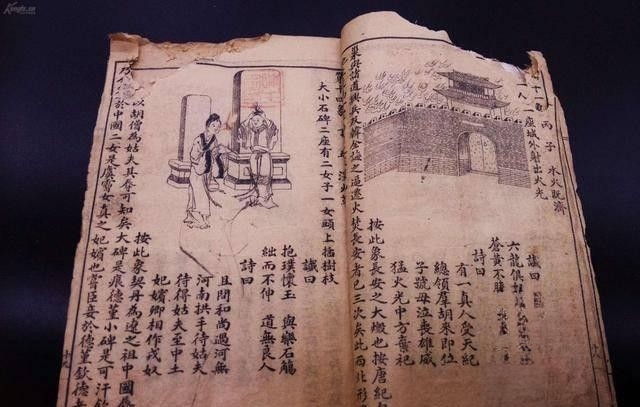 丙子 水火既濟
座城外射出火光
讖曰
六龍俱
蒼黃不勝
詩曰
有一真人癸天紀
總領羣胡來即位
子號母泣喪雄威
猛火光中方棄祀
按此象長安之大燬也按唐紀
巢與諸道興兵及韓全誨之逼遷火焚長安者已三次矣此西北形
第十四
大小石碑二座有二女子一女頭上插樹枝
讖曰
抱璞懷玉 與藥石
絀而不伸 道無良人
詩曰
且問和尚過河無
河南拱手待姑夫
待得姑夫至中土
妃嬪卿相作戎奴
按此象契丹為遼之祖中國
以胡僧為姑夫其眷可知矣大碑是痕德菫小碑是可汗欽
於中國二女是女真之妃嬪也臣妾於德菫欽德
Kongfz.cn